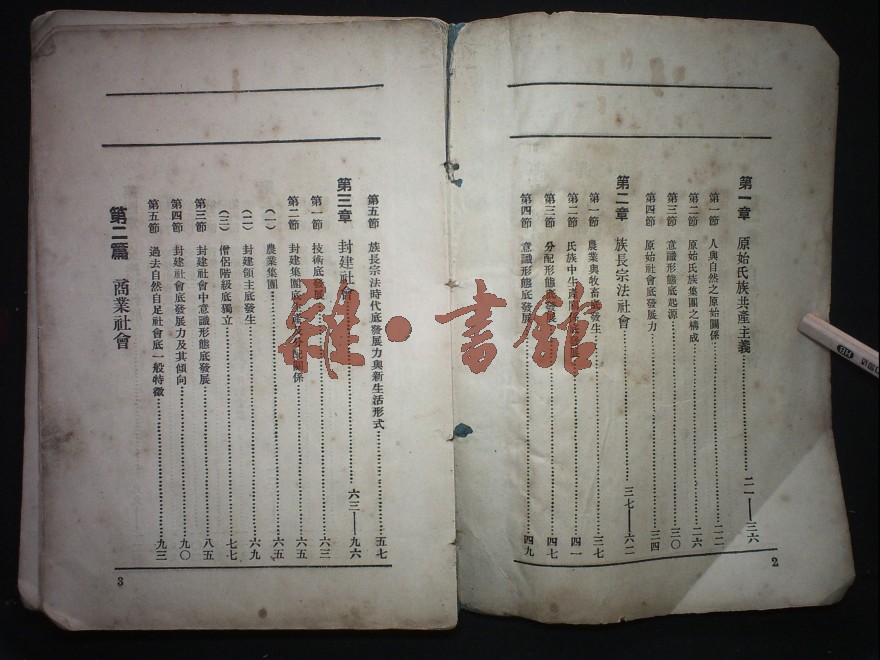 第一章 原始氏族共產主義……二一——三六
第一節 人與自然之原始關係……二二
第二節 原始氏族集團之構成……二六
第三節 意識形態底起源……三〇
第四節 原始社會底發展力……三四
第二章 族長宗法社會……三七——六二
第一節 農業與牧畜底發生……三七
第二節 氏族中生產……四一
第三節 分配形態底發展……四七
第四節 意識形態底發展……四九
2
第五節 族長宗法時代底發展力與新生活形式……五七
第三章 封建社會……六三——九六
第一節 技術底發展……六三
第二節 封建集團底生產及分配關係……六五
（一） 農業集團……六五
（二） 封建領主底發生……六九
（三） 僧侶階級底獨立……七七
第三節 封建社會中意識形態底發展……八五
第四節 封建社會底發展力及其傾向……九〇
第五節 過去自然自足社會底一般特徵……九三
第二篇 商業社會
3
雜·書館
6H